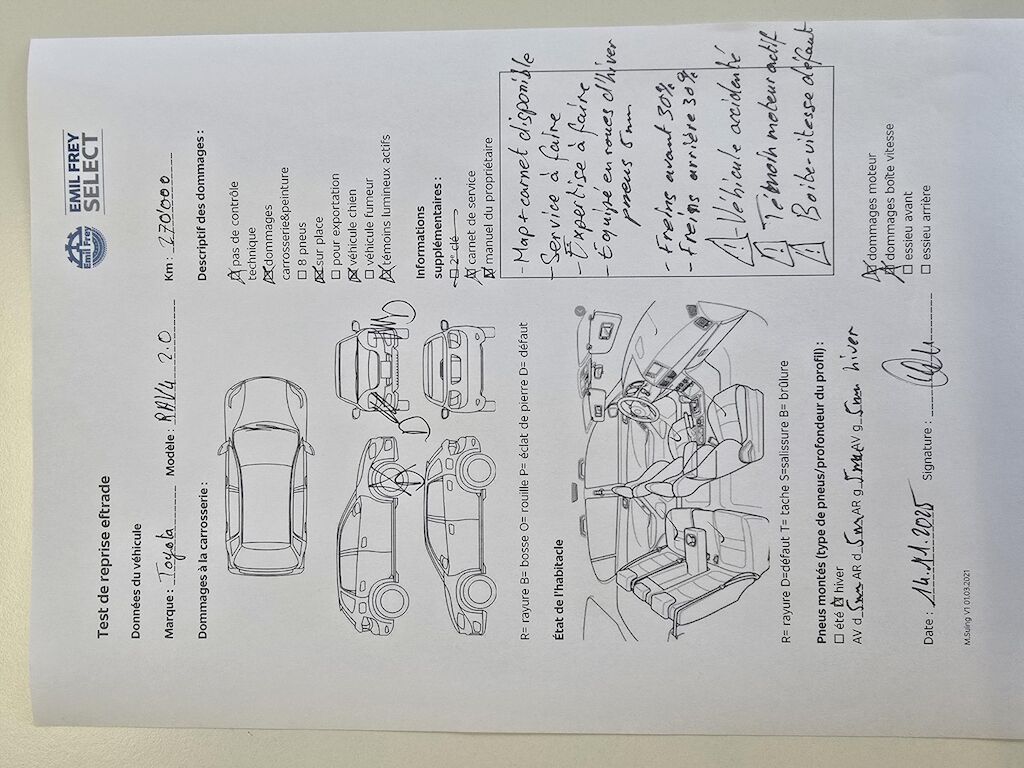 Test de reprise eftrade
Emil Frey
EMIL FREY
SELECT
Données du véhicule
Marque : Toyota Modèle : RAV4 2.0 Km : 270'000
Dommages à la carrosserie :
Descriptif des dommages :
pas de contrôle
technique
dommages
carrosserie&peinture
8 pneus
sur place
pour exportation
véhicule chien
véhicule fumeur
témoins lumineux actifs
R= rayure B= bosse O= rouille P= éclat de pierre D= défaut
Informations
supplémentaires :
2e clé
carnet de service
manuel du propriétaire
État de l'habitacle
- Map + carnet disponible
- Service à faire
- Expertise à faire
- Equipé en roues d'hiver
pneus 5mm
- Freins avant 30%
- Freins arrière 30%
! - Véhicule accidenté
! Témoin moteur actif
! Boite-vitesse défaut
R= rayure D=défaut T= tache S=salissure B= brûlure
Pneus montés (type de pneus/profondeur du profil) :
été hiver
AV d 5mm AR d 5mm AR g 5mm AV g 5mm hiver
dommages moteur
dommages boîte vitesse
essieu avant
essieu arrière
Date : 14.11.2025 Signature :
M.Suing V1 01.03.2021